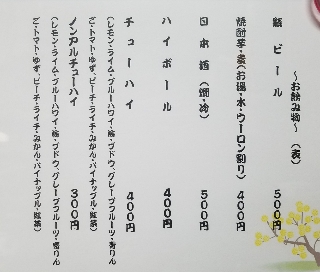 ～お飲み物～（表）
瓶ビール　５００円
焼酎芋・麦（お湯・水・ウーロン割り）４００円
日本酒（燗・冷）　５００円
ハイボール　４００円
チューハイ　４００円
（レモン・ライム・ブルーハワイ・梅・ブドウ・グレープフルーツ・青りん
ご・トマト・ゆず、ピーチ・ライチ・みかん・パイナップル・紅茶）
ノンアルチューハイ　３００円
（レモン・ライム・ブルーハワイ・梅・ブドウ・グレープフルーツ・青りん
ご・トマト・ゆず、ピーチ・ライチ・みかん・パイナップル・紅茶）